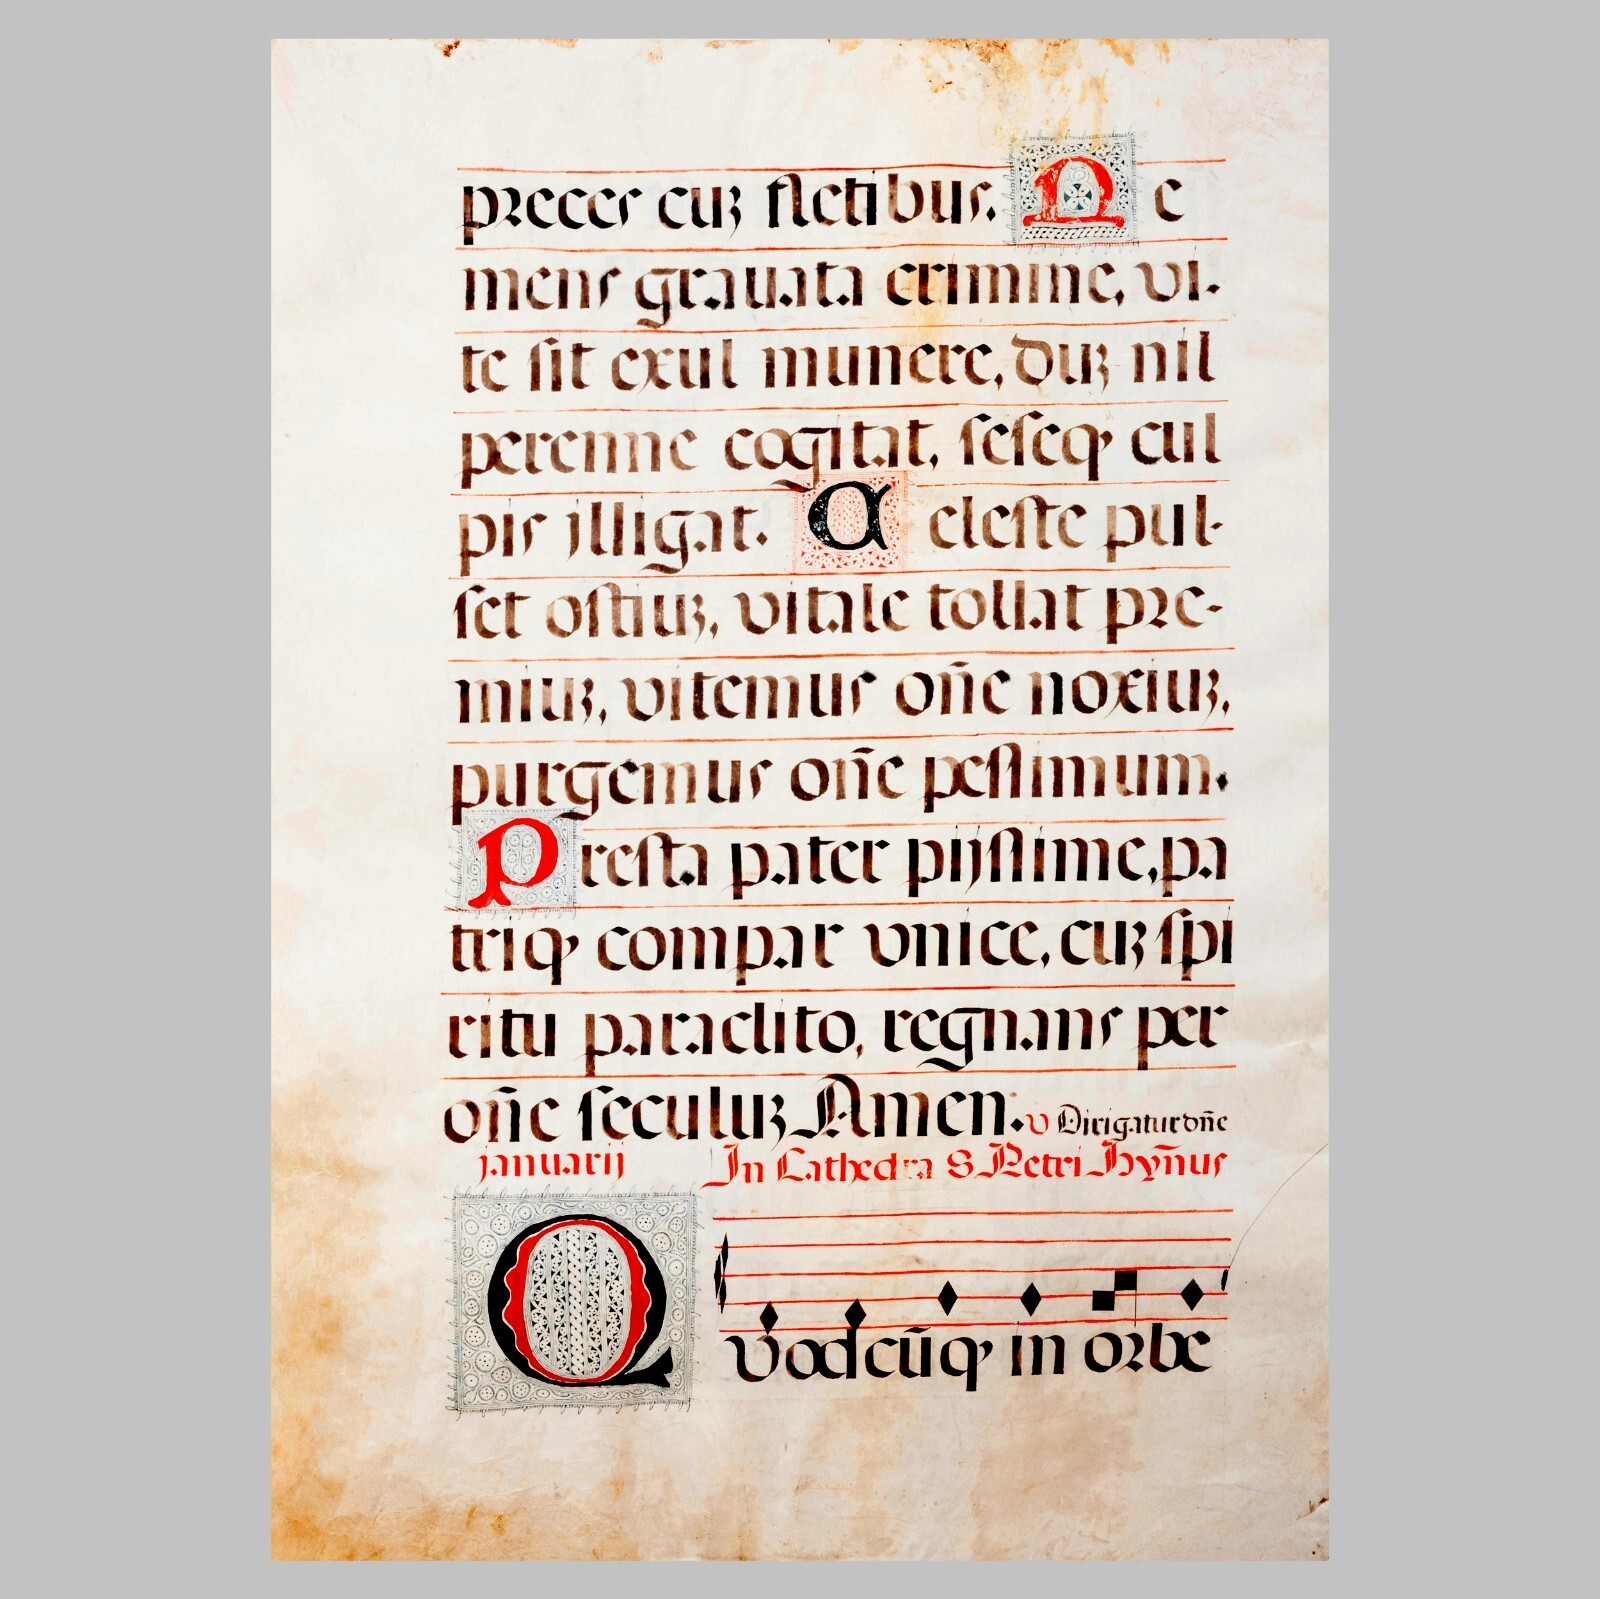 preces cuʒ fletibus. Ne
mens grauata crimine, vi-
te sit exul munere, duʒ nil
perenne cogitat, seseqꝫ cul
pis illigat. Celeste pul-
set ostiuʒ, vitale tollat pre-
miuʒ, vitemus oñe noxiuʒ,
purgemus oñe pessimum.
Presta pater pijssime, pa
triqꝫ compar vnice, cuʒ spi
ritu paraclito, regnans per
oñe seculuʒ Amen. v Dirigatur dñe
januarij In Cathedra S Petri Hyñus
Quodcũqꝫ in orbe